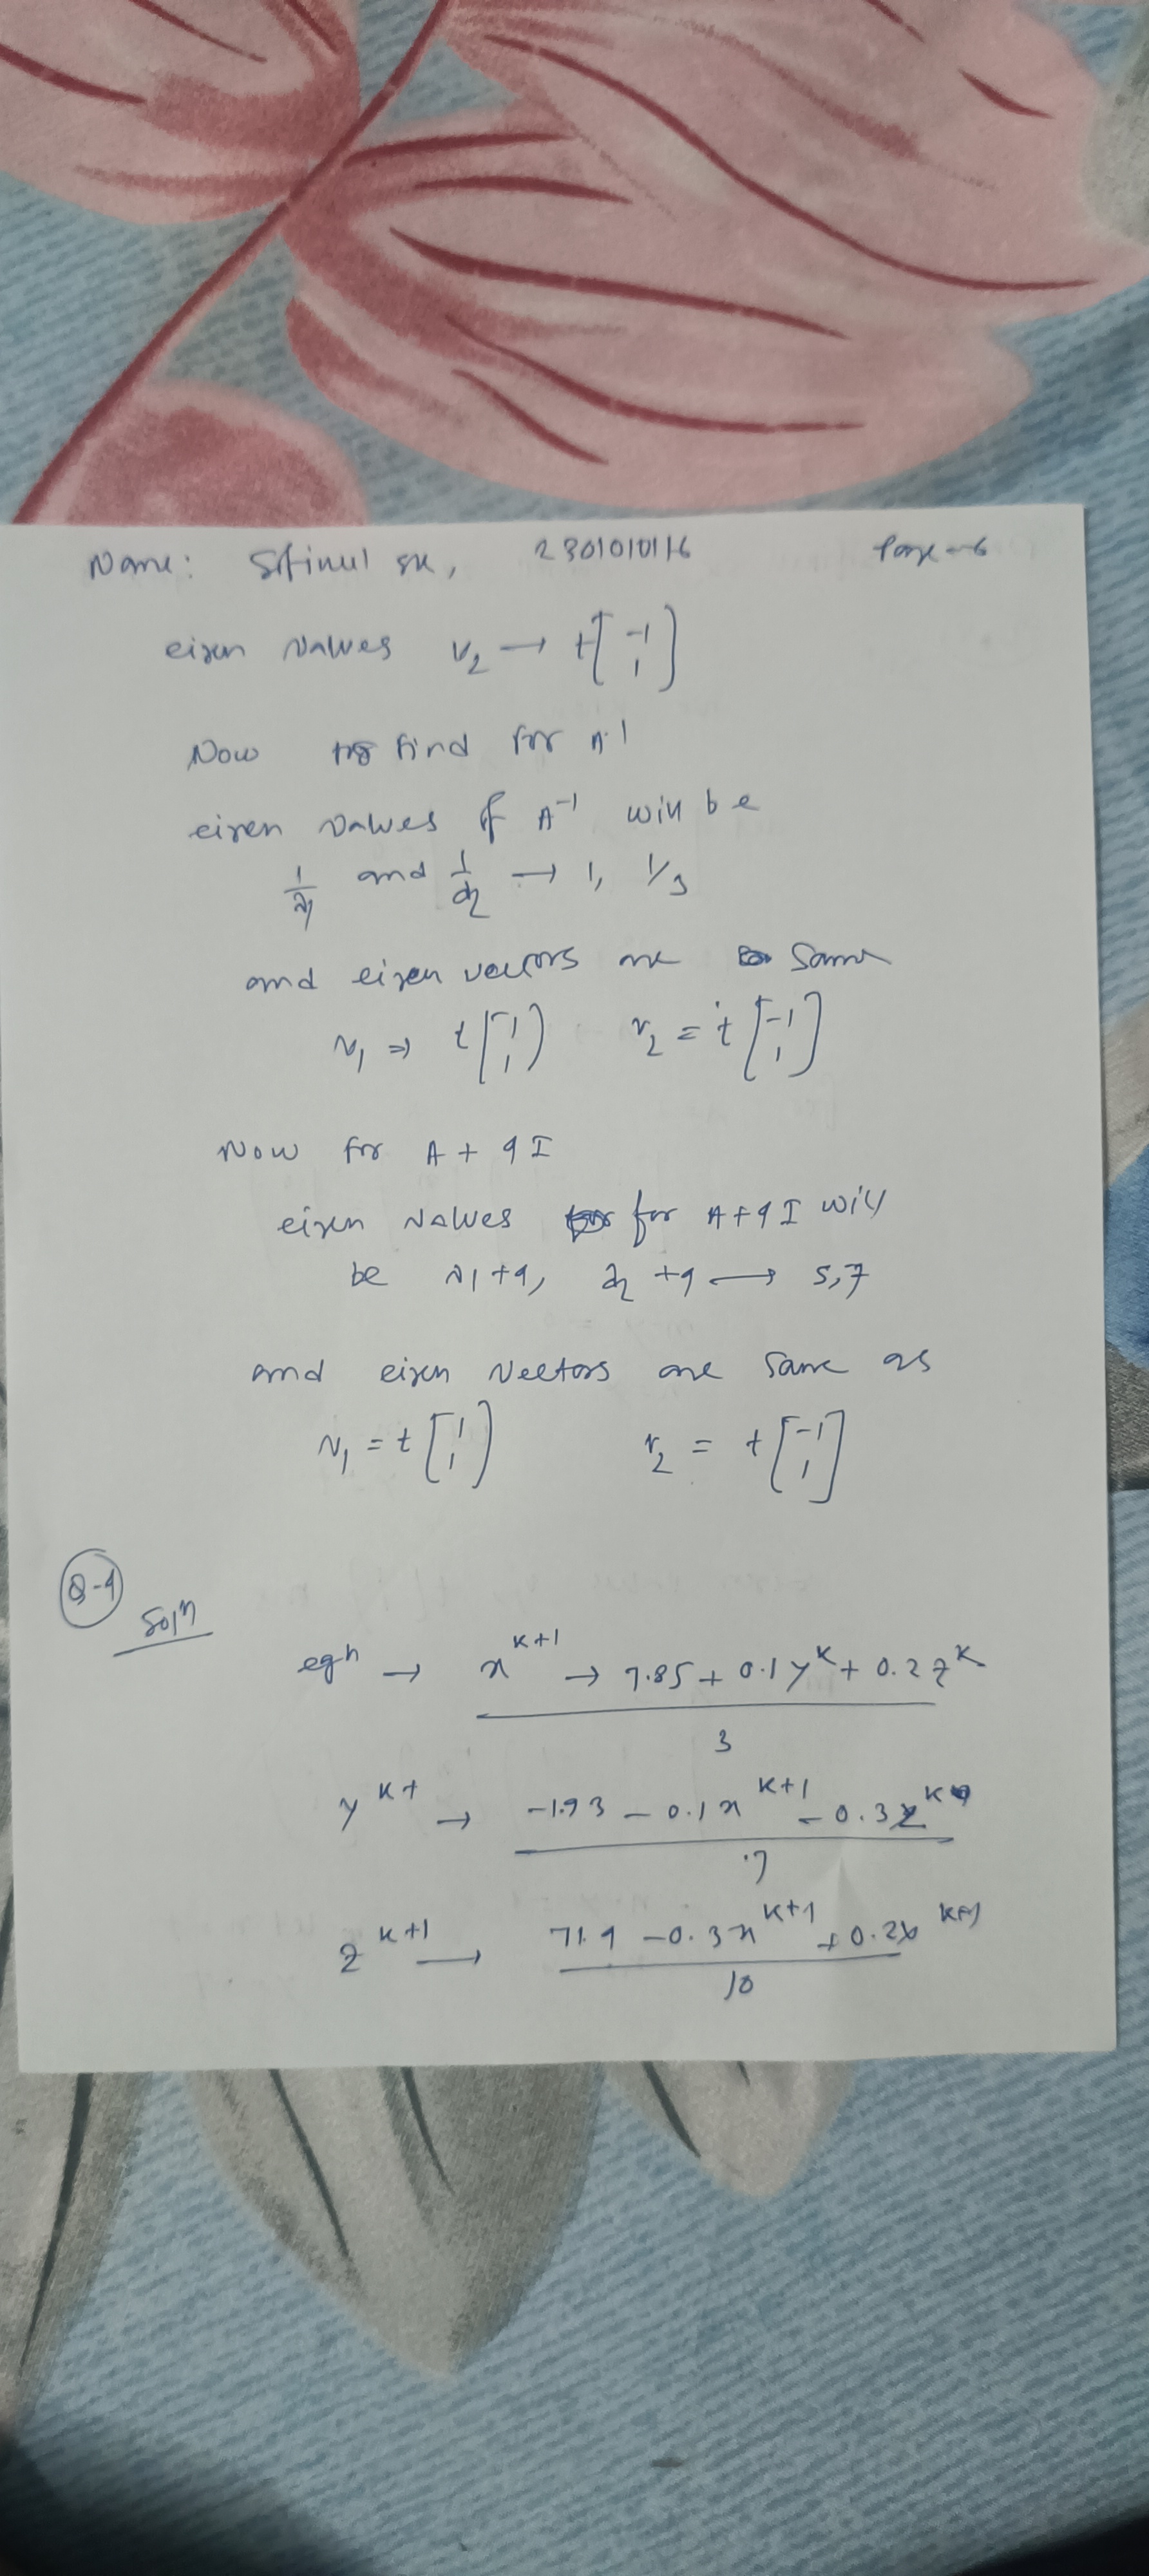 Name: Sitinul sk, 2301010116 Page-6
eigen values v₂ → t[-1 1]
Now to find for A-1
eigen values of A⁻¹ will be
1/λ₁ and 1/λ₂ → 1, 1/3
and eigen vectors are same
v₁ ⇒ t[1 1] v₂ = t[-1 1]
Now for A + 4I
eigen values for A+4I will
be λ1+4, λ2+4 → 5,7
and eigen vectors are same as
v₁ = t[1 1] v₂ = t[-1 1]
Q-4
Solⁿ
eqⁿ → x^{k+1} → 7.85 + 0.1y^k + 0.2z^k
3
y^{k+} → -19.3 - 0.1x^{k+1} - 0.3z^k
7
z^{k+1} → 71.4 - 0.3x^{k+1} + 0.2 ^{k+1}
10